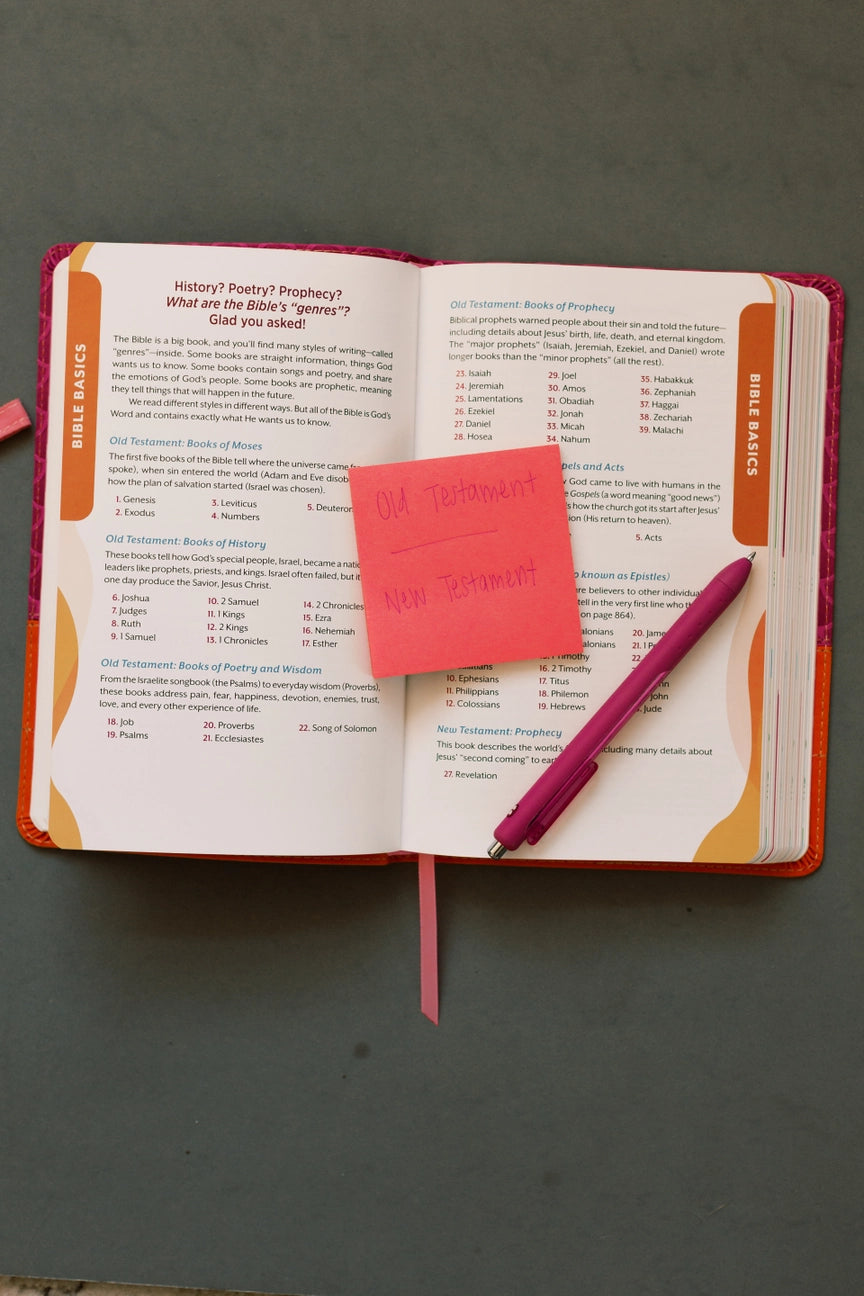 BIBLE BASICS
History? Poetry? Prophecy?
What are the Bible's "genres"?
Glad you asked!
The Bible is a big book, and you'll find many styles of writing—called
"genres"—inside. Some books are straight information, things God
wants us to know. Some books contain songs and poetry, and share
the emotions of God's people. Some books are prophetic, meaning
they tell things that will happen in the future.
We read different styles in different ways. But all of the Bible is God's
Word and contains exactly what He wants us to know.
Old Testament: Books of Moses
The first five books of the Bible tell where the universe came
spoke), when sin entered the world (Adam and Eve
how the plan of salvation started (Israel was chosen).
1. Genesis
2. Exodus
3. Leviticus
4. Numbers
5.
Old Testament: Books of History
These books tell how God's special people, Israel, became a
leaders like prophets, priests, and kings. Israel often failed, but
one day produce the Savior, Jesus Christ.
6. Joshua
7. Judges
8. Ruth
9. 1 Samuel
10. 2 Samuel
11. 1 Kings
12. 2 Kings
13. 1 Chronicles
14. 2 Chronicles
15. Ezra
16. Nehemiah
17. Esther
Old Testament: Books of Poetry and Wisdom
From the Israelite songbook (the Psalms) to everyday wisdom (Proverbs),
these books address pain, fear, happiness, devotion, enemies, trust,
love, and every other experience of life.
18. Job
19. Psalms
20. Proverbs
21. Ecclesiastes
22. Song of Solomon
Old Testament
New Testament
Old Testament: Books of Prophecy
Biblical prophets warned people about their sin and told the future—
including details about Jesus' birth, life, death, and eternal kingdom.
The "major prophets" (Isaiah, Jeremiah, Ezekiel, and Daniel) wrote
longer books than the "minor prophets" (all the rest).
23. Isaiah
24. Jeremiah
25. Lamentations
26. Ezekiel
27. Daniel
28. Hosea
29. Joel
30. Amos
31. Obadiah
32. Jonah
33. Micah
34. Nahum
35. Habakkuk
36. Zephaniah
37. Haggai
38. Zechariah
39. Malachi
and Acts
God came to live with humans in the
Gospels (a word meaning "good news")
how the church got its start after Jesus'
(His return to heaven).
5. Acts
known as Epistles)
are believers to other
tell in the very first line who
on page 864).
10. Ephesians
11. Philippians
12. Colossians
16. 2 Timothy
17. Titus
18. Philemon
19. Hebrews
20.
21.
22.
John
Jude
New Testament: Prophecy
This book describes the world's including many details about
Jesus' "second coming" to
27. Revelation
BIBLE BASICS